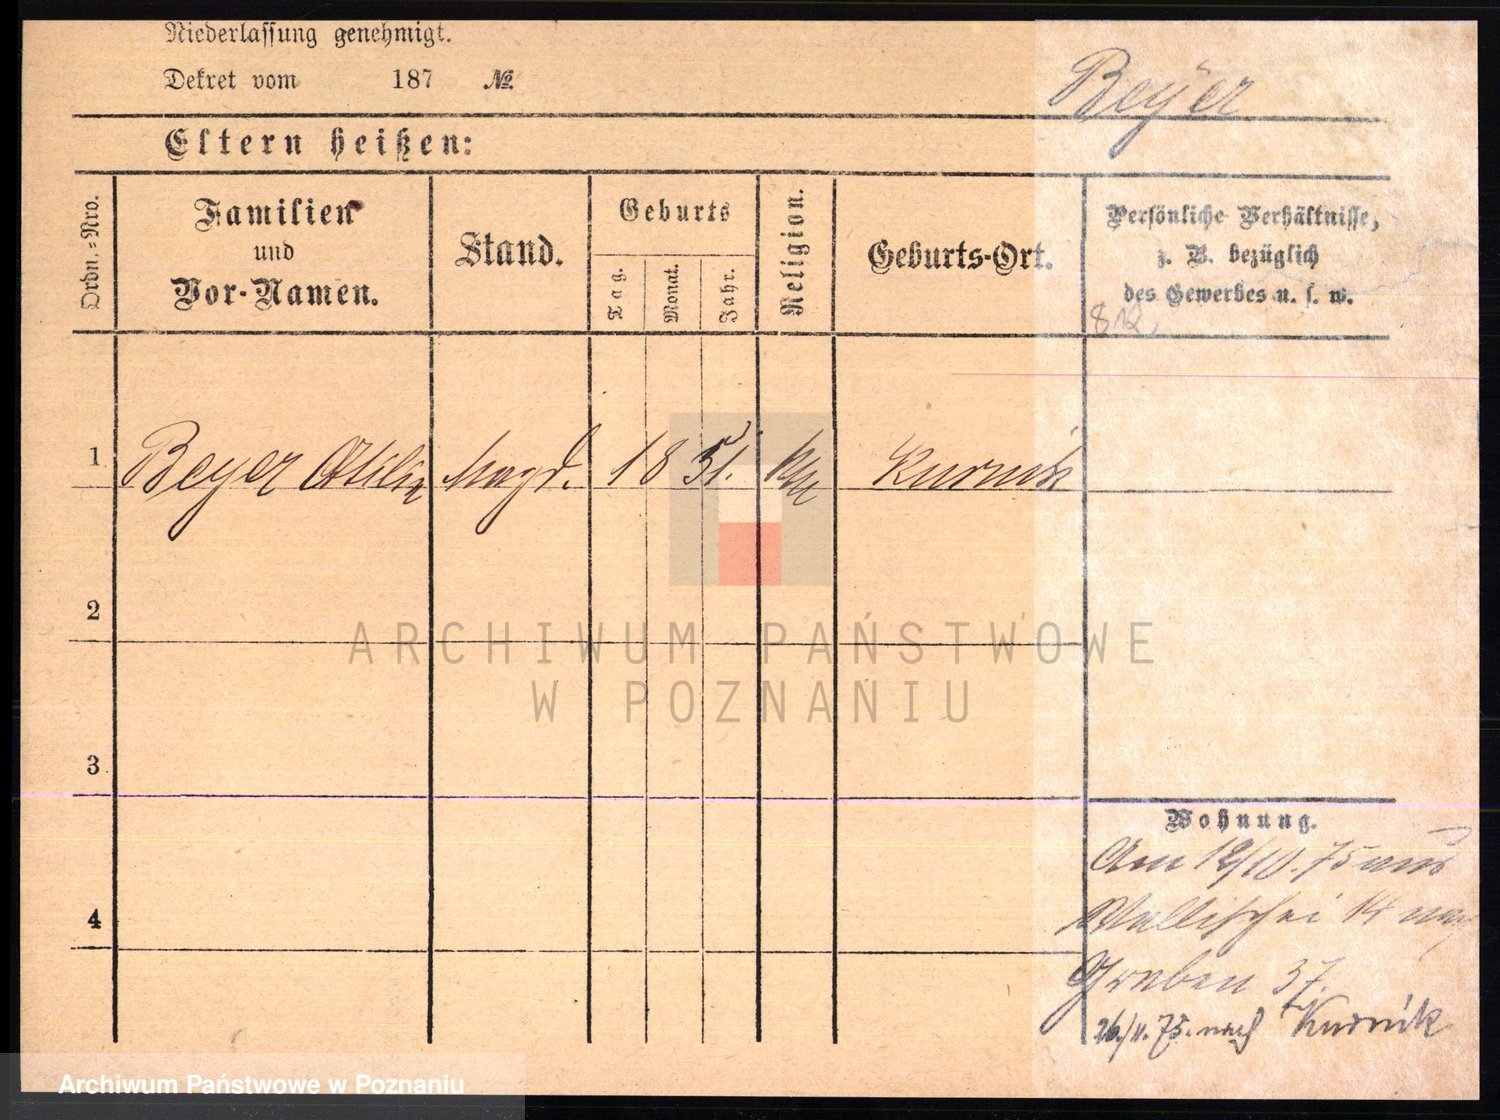 Niederlassung genehmigt.
Dekret vom 187 №
Beyer
Eltern heißen:
Ordn.=Nro.
Familien
und
Vor-Namen.
Stand.
Geburts
Tag.
Monat.
Jahr.
Religion.
Geburts-Ort.
Persönliche Verhältnisse,
z. B. bezüglich
des Gewerbes u. s. w.
812
1 Beyer Magd. 18 51. Kurnik
2
3
4
Wohnung.
Am 12/10. 75 aus
Wallischei 14 nach
Graben 37.
26/11. 75. nach Kurnik
ARCHIWUM PAŃSTWOWE
W POZNANIU
Archiwum Państwowe w Poznaniu